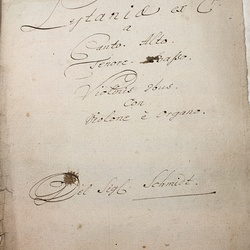 Lytaniæ ex C
a
Canto. Alto.
Tenore. Basso.
Violinis duus.
Con
Violone è Organo.
Del Sigl Schmidt.